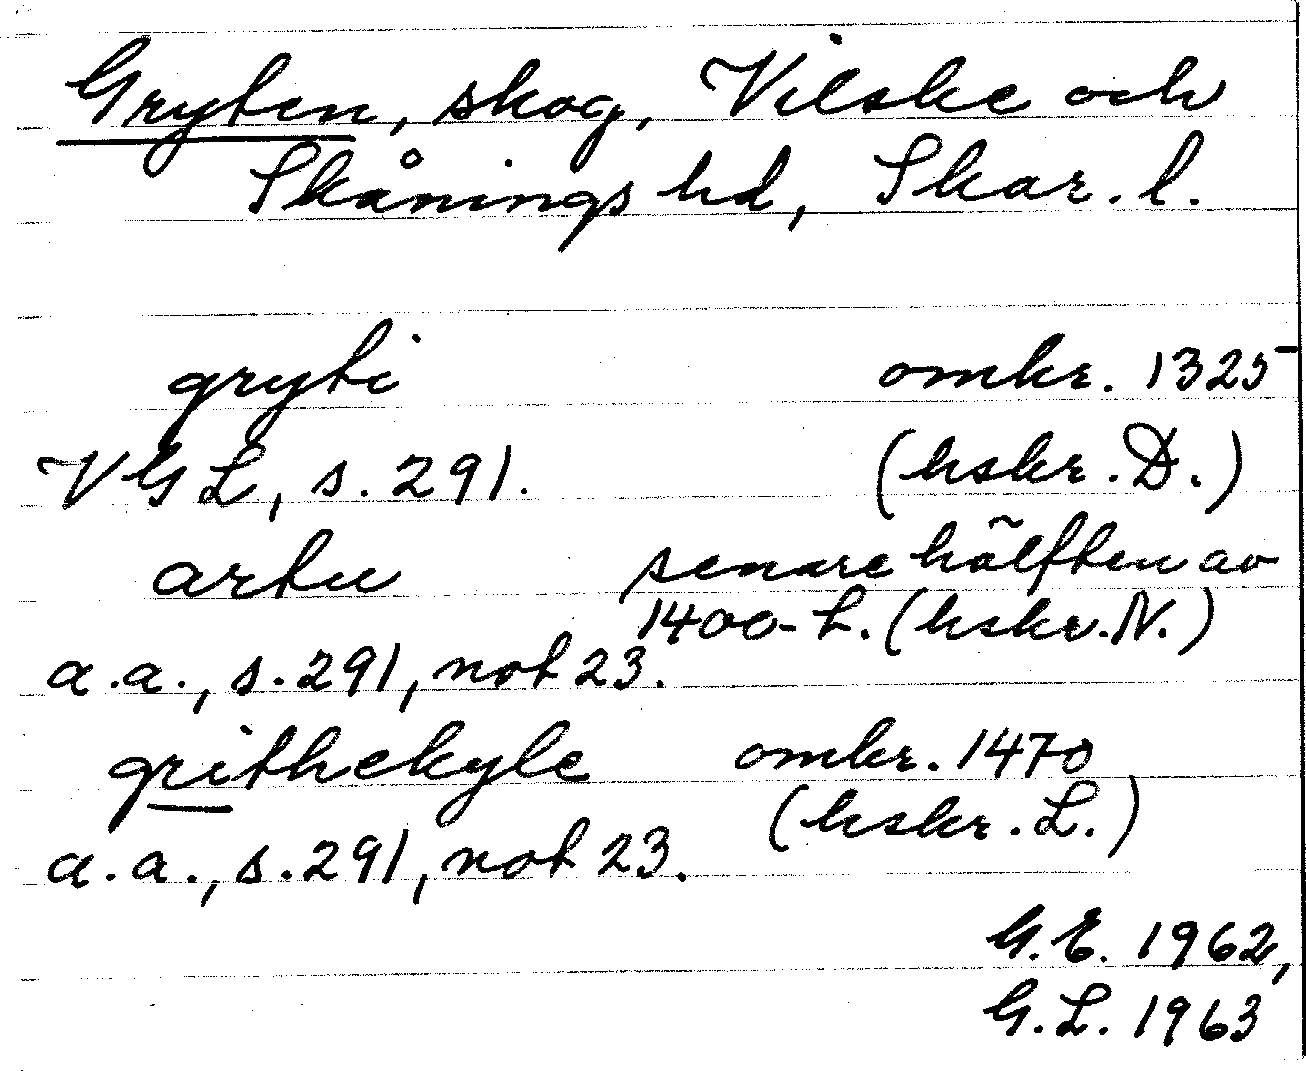 Gryten, skog, Vilske och
Skånings hd, Skar. l.
gryti omkr. 1325
VGL, s. 291. (hskr. D.)
artu senare hälften av
1400-t. (hskr. N.)
a.a., s. 291, not 23.
grithekyle omkr. 1470
(hskr. L.)
a.a., s. 291, not 23.
G.E. 1962,
G.L. 1963